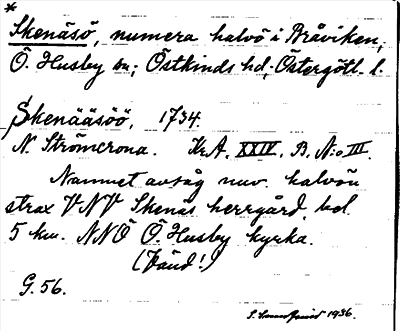 *
Skenäsö, numera halvö i Bråviken,
Ö. Husby sn; Östkinds hd; Östergötl. l.
Skenääsöö, 1734.
N. Strömcrona. Kr.A. XXIV. B. N:o III.
Namnet avsåg nuv. halvön
strax VNV Skenäs herrgård, bel.
5 km. NNÖ Ö. Husby kyrka.
(Länd!)
G. 56.
1936.